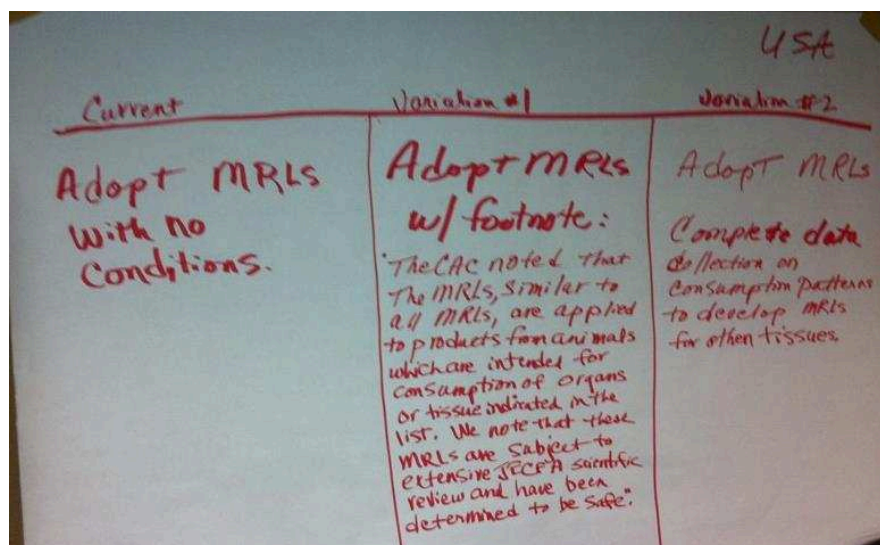 USA
Current
Variation #1
Variation #2
Adopt MRLs
with no
Conditions.
Adopt MRLs
w/ footnote:
"The CAC noted that
The MRLs, similar to
all MRLs, are applied
to products from animals
which are intended for
consumption of organs
or tissue indicated in the
list. We note that these
MRLs are subject to
extensive JECFA scientific
review and have been
determined to be safe".
Adopt MRLs
Complete data
collection on
consumption patterns
to develop MRLs
for other tissues.